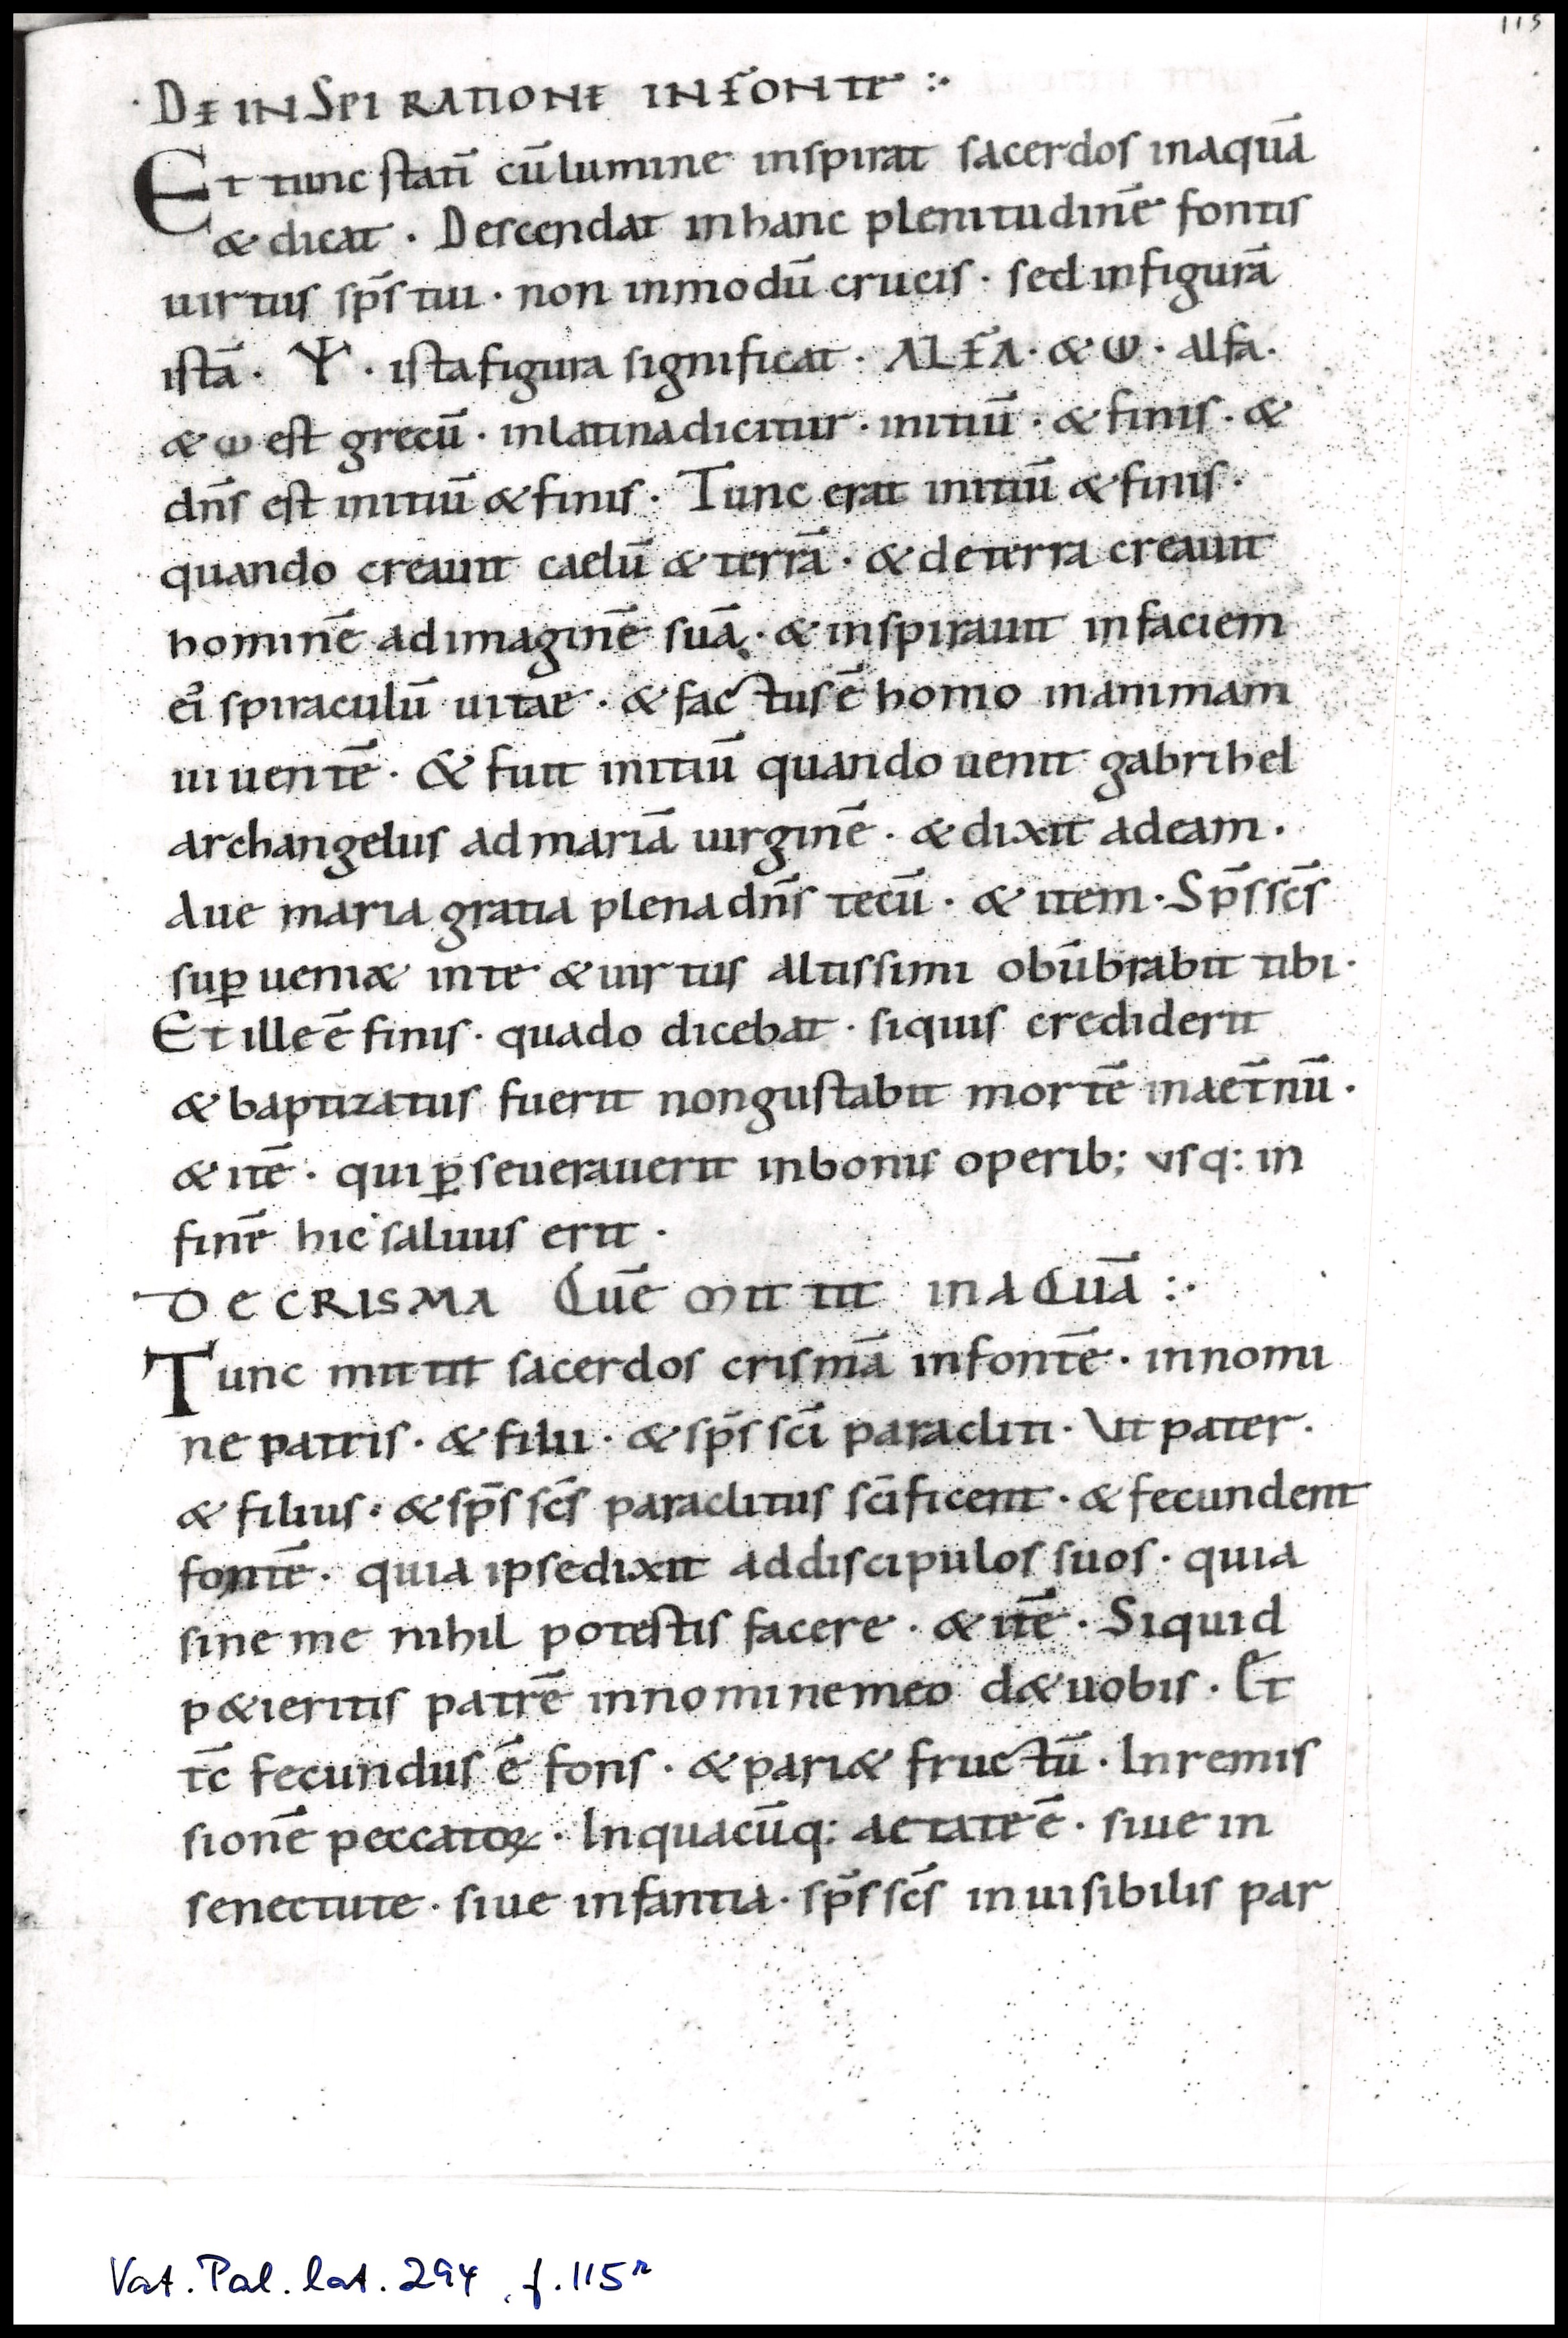 115
· DE INSPIRATIONE IN FONTE :·
Et tunc statī cū lumine inspirat sacerdos in aquā
& dicat · Descendat in hanc plenitudinē fontis
uirtus sp̄s tui · non in modū crucis · sed in figurā
istā · Ψ · ista figura significat · ALFA · & ω · alfa ·
& ω est grecū · in latina dicitur · initiū · & finis · &
dn̄s est initiū & finis · Tunc erat initiū & finis ·
quando creauit caelū & terrā · & de terra creauit
hominē ad imaginē suā · & inspirauit in faciem
ei᾽ spiraculū uitae · & factus ē homo in animam
uiuentē · & fuit initiū quando uenit gabrihel
archangelus ad mariā uirginē · & dixit ad eam ·
Aue maria gratia plena dn̄s tecū · & item · Sp̄s sc̄s
suꝑueni& in te & uirtus altissimi obūbrabit tibi ·
Et ille ē finis · quado dicebat · siquis crediderit
& baptizatus fuerit non gustabit mortē in aet̄nū ·
& itē · qui ꝑseuerauerit in bonis operib; usq: in
finē hic saluus erit ·
DE CRISMA QUĒ MITTIT IN AQUĀ :·
Tunc mittit sacerdos crismā in fontē · in nomi
ne patris · & filii · & sp̄s sc̄i paracliti · Ut pater ·
& filius · & sp̄s sc̄s paraclitus sc̄ificent · & fecundent
fontē · quia ipse dixit ad discipulos suos · quia
sine me nihil potestis facere · & itē · Siquid
p&ieritis patrē in nomine meo d& uobis · Et
tc̄ fecundus ē fons · & pari& fructū · In remis
sionē peccatoꝝ · In quacūq: aetate ē · siue in
senectute · siue infantia · sp̄s sc̄s inuisibilis par
Vat. Pal. lat. 294, f. 115r